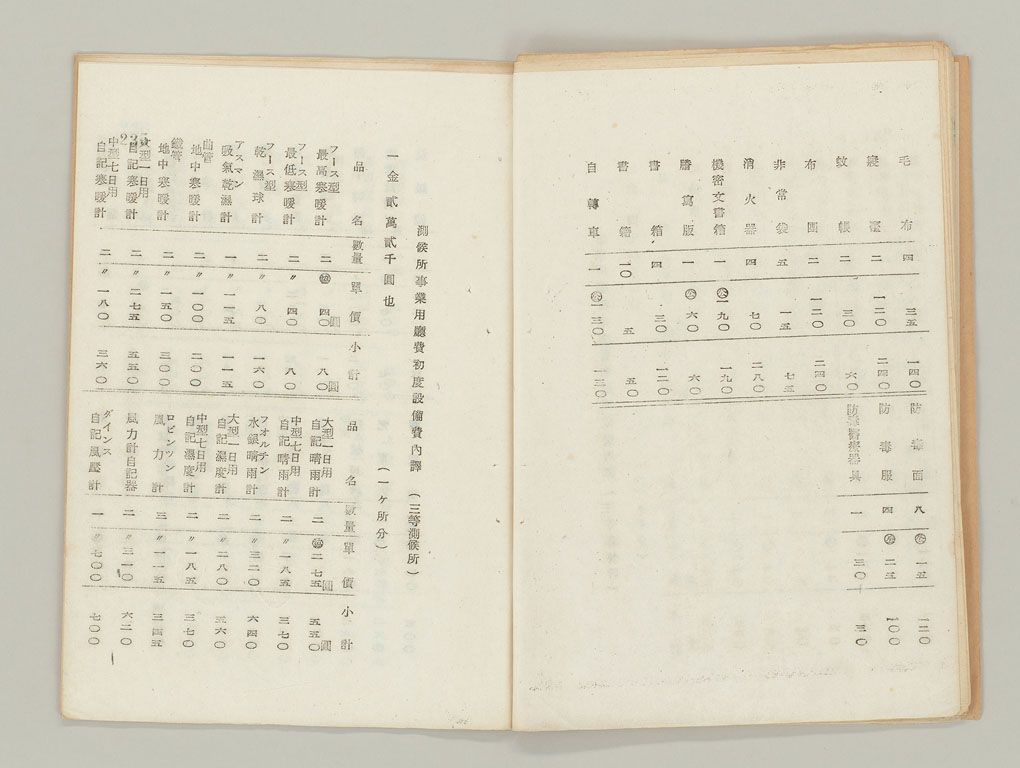 毛布 四 三五 一四〇
寢臺 二 一二〇 二四〇
蚊帳 二 三〇 六〇
布團 二 一二〇 二四〇
非常袋 五 一五 七五
消火器 四 七〇 二八〇
機密文書箱 一 一九〇 一九〇
謄寫版 一 六〇 六〇
書箱 四 三〇 一二〇
書箱 一〇 五 五〇
自轉車 一 一三〇 一三〇
防毒面 八 一五 一二〇
防毒服 四 二五 一〇〇
防毒醫療器具 一 三〇 三〇
測候所事業用廳費初度設備費內譯 (三等測候所)
一金貳萬貳千圓也 (一ヶ所分)
品名 數量 單價 小計
フース型最高寒暖計 二 四〇圓 八〇圓
フース型最低寒暖計 二 〃 四〇 八〇
フース型乾濕球計 二 〃 八〇 一六〇
アスマン吸氣乾濕計 一 〃 一一五 一一五
曲管地中寒暖計 二 〃 一〇〇 二〇〇
鐵管地中寒暖計 二 〃 一五〇 三〇〇
大型一日用自記寒暖計 二 〃 二七五 五五〇
中型七日用自記寒暖計 二 〃 一八〇 三六〇
品名 數量 單價 小計
大型一日用自記晴雨計 二 二七五圓 五五〇圓
中型七日用自記晴雨計 二 〃 一八五 三七〇
フォルチン水銀晴雨計 二 〃 三二〇 六四〇
大型一日用自記濕度計 二 〃 二八〇 五六〇
中型七日用自記濕度計 二 〃 一八五 三七〇
ロビンソン風力計 三 〃 一一五 三四五
風力計自記器 二 〃 三一〇 六二〇
ダインス自記風壓計 一 〃 七〇〇 七〇〇